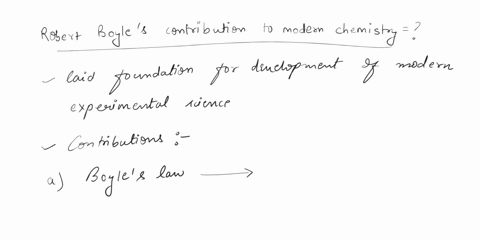 Robert Boyle's contribution to modern chemistry = ?
✓ laid foundation for development of modern
experimental science
✓ Contributions :-
a) Boyle's law ⟶